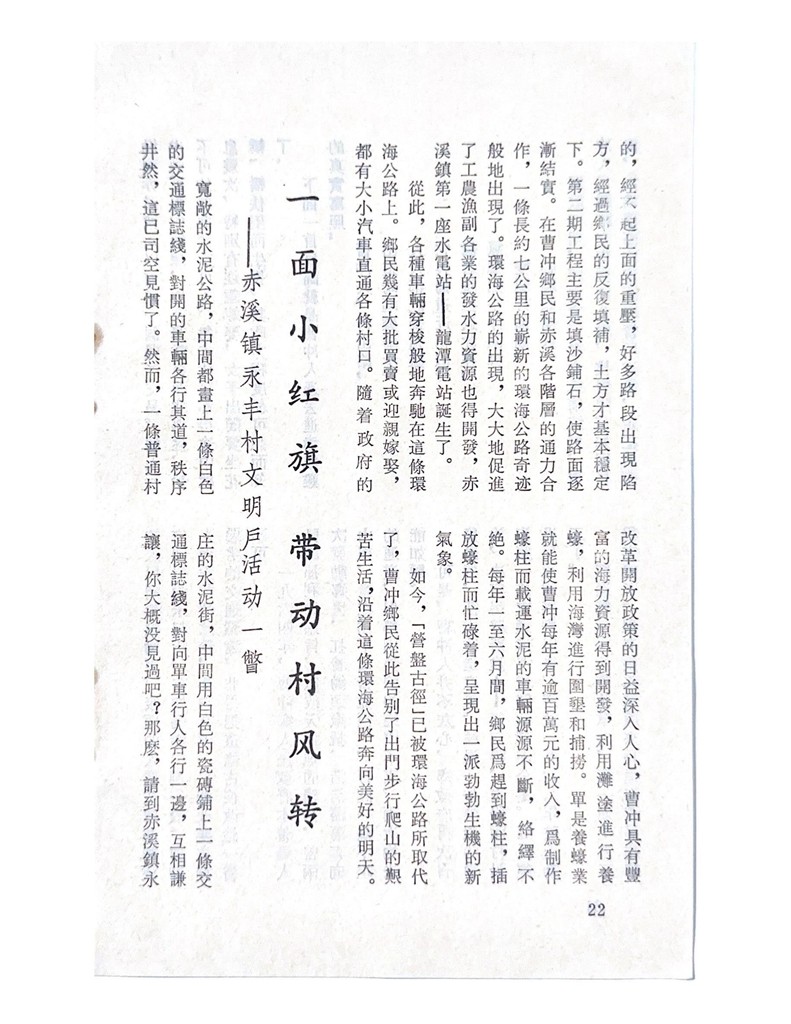 的，經不起上面的重壓，好多路段出現陷
方，經過鄉民的反復填補，土方才基本穩定
下。第二期工程主要是填沙鋪石，使路面逐
漸結實。在曹冲鄉民和赤溪各階層的通力合
作，一條長約七公里的嶄新的環海公路奇迹
般地出現了。環海公路的出現，大大地促進
了工農漁副各業的發水力資源也得開發，赤
溪鎮第一座水電站——龍潭電站誕生了。
從此，各種車輛穿梭般地奔馳在這條環
海公路上。鄉民幾有大批買賣或迎親嫁娶，
都有大小汽車直通各條村口。隨着政府的
改革開放政策的日益深入人心，曹冲具有豐
富的海力資源得到開發，利用灘塗進行養
蠔，利用海灣進行圍墾和捕撈。單是養蠔業
就能使曹冲每年有逾百萬元的收入，爲制作
蠔柱而載運水泥的車輛源源不斷，絡繹不
絶。每年一至六月間，鄉民爲趕到蠔柱，插
放蠔柱而忙碌着，呈現出一派勃勃生機的新
氣象。
如今，「營盤古徑」已被環海公路所取代
了，曹冲鄉民從此告别了出門步行爬山的艱
苦生活，沿着這條環海公路奔向美好的明天。
一面小红旗 带动村风转
——赤溪镇永丰村文明户活动一瞥
寬敞的水泥公路，中間都畫上一條白色
的交通標誌綫，對開的車輛各行其道，秩序
井然，這已司空見慣了。然而，一條普通村
庄的水泥街，中間用白色的瓷磚鋪上一條交
通標誌綫，對向單車行人各行一邊，互相謙
讓，你大概没見過吧？那麽，請到赤溪鎮永
22